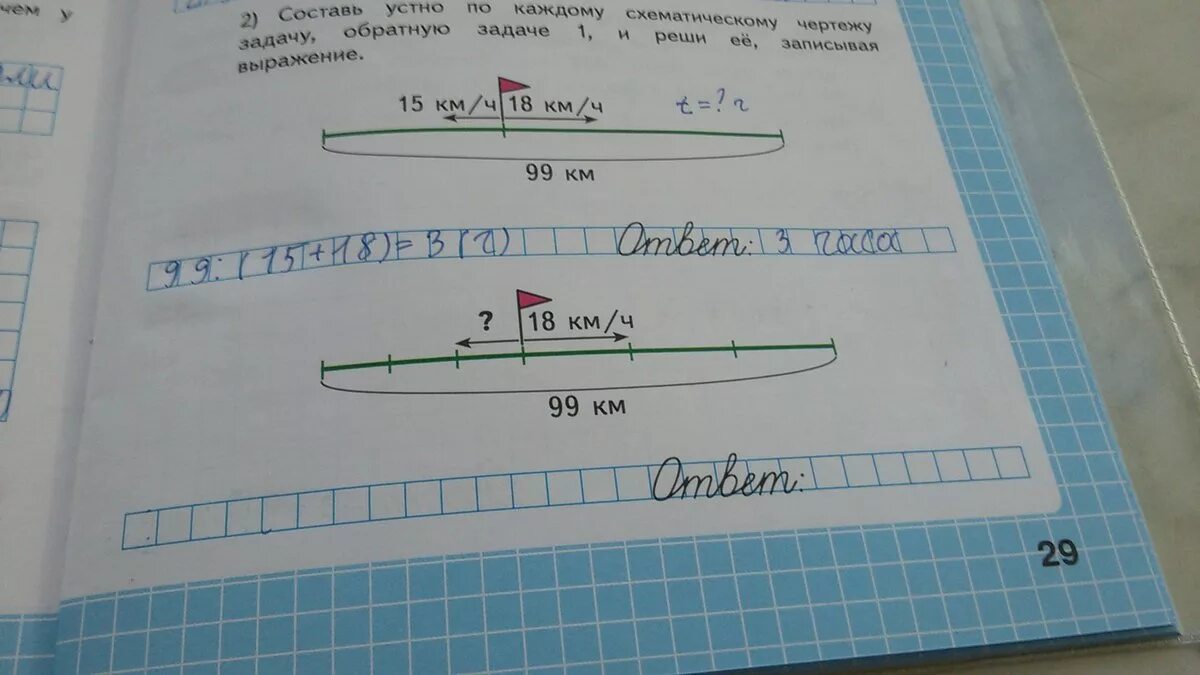 чем у
2) Составь устно по каждому схематическому чертежу
задачу, обратную задаче 1, и реши её, записывая
выражение.
15 км/ч 18 км/ч t = ? ч
99 км
99:(15+18)=3(ч) Ответ: 3 часа
? 18 км/ч
99 км
Ответ:
29